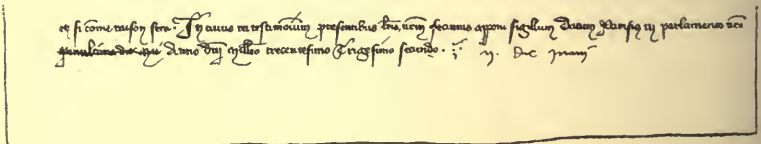 et si come raison sera. In cuius rei testimonium presentibus lris nrm fecimus apponi sigillum Datum Parisius in parlamento nro
Anno dni millio trecentesimo Trigesimo secundo. : ij. die maii